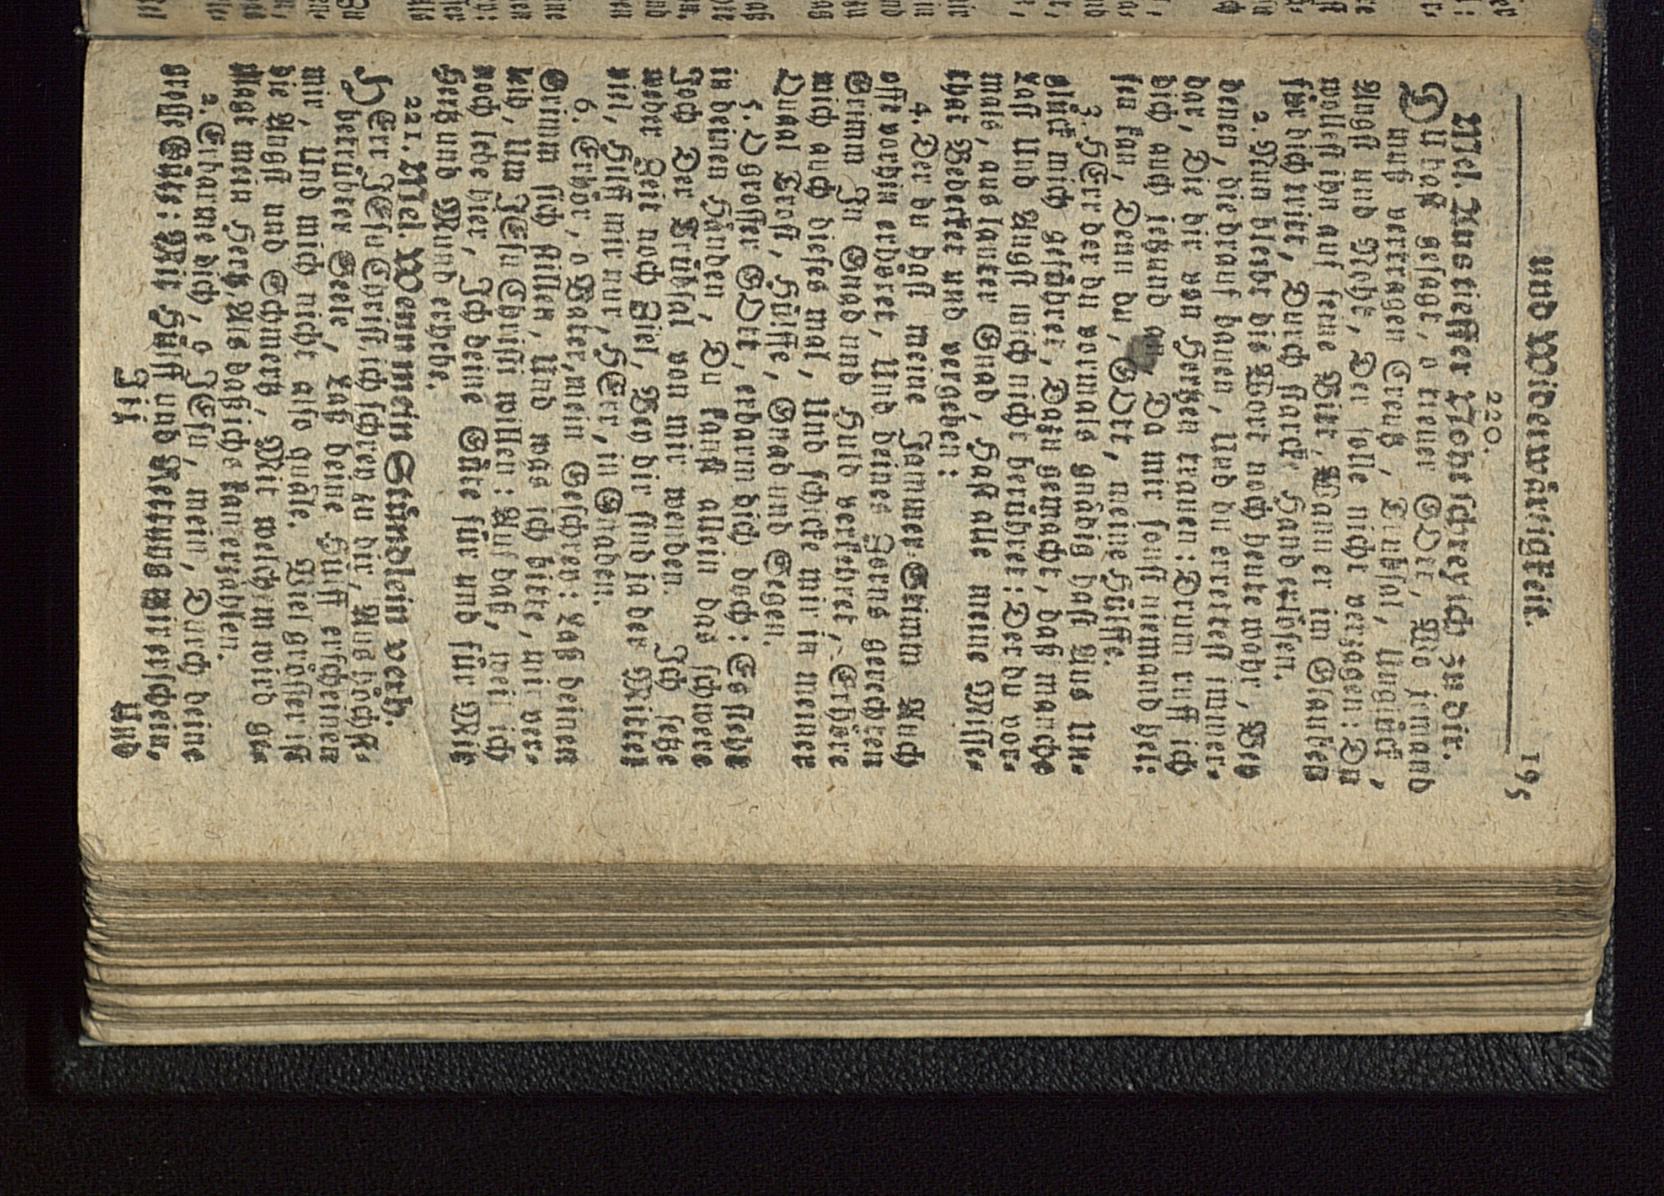 und Widerwärtigkeit. 195
220.
Mel. Aus tieffer Noht schrey ich zu dir.
DU hast gesagt, o treuer GOtt, Wo jemand
muß vertragen Creutz, Trübsal, Unglück,
Angst und Noht, Der solle nicht verzagen: Du
wollest ihn auf seine Bitt, Wann er im Glauben
für dich tritt, Durch starcke Hand erlösen.
2. Nun bleibt dis Wort noch heute wahr, Bey
denen, die drauf bauen, Und du errettest immer-
dar, Die dir von Hertzen trauen: Drum ruff ich
dich auch jetzund an, Da mir sonst niemand hel-
fen kan, Denn du, GOtt, meine Hülffe.
3. HErr der du vormals gnädig hast Aus Un-
glück mich geführet, Dazu gemacht, daß manche
Last Und Angst mich nicht berühret: Der du vor-
mals, aus lauter Gnad, Hast alle meine Misse-
that Bedecket und vergeben:
4. Der du hast meine Jammer Stimm Auch
offt vorhin erhöret, Und deines Zorns gerechten
Grimm In Gnad und Huld verkehret, Erhöre
mich auch dieses mal, Und schicke mir in meiner
Quaal Trost, Hülffe, Gnad und Segen.
5. O grosser GOtt, erbarm dich doch: Es steht
in deinen Händen, Du kanst allein das schwere
Joch Der Trübsal von mir wenden. Ich setze
weder Zeit noch Ziel, Bey dir sind ja der Mittel
viel, Hilf mir nur, HErr, in Gnaden.
6. Erhör, o Vater, mein Geschrey: Laß deinen
Grimm sich stillen, Und was ich bitte, mir ver-
leih, Um JEsu Christi willen: Auf daß, weil ich
noch lebe hier, Ich deine Güte für und für Mit
Hertz und Mund erhebe.
221. Mel. Wenn mein Stündlein verh.
HErr JEsu Christ ich schrey zu dir, Aus höchst-
betrübter Seele, Laß deine Hülff erscheinen
mir, Und mich nicht also quäle. Viel grösser ist
die Angst und Schmertz, Mit welchem wird ge-
plagt mein Hertz, Als daß ichs kan erzählen.
2. Erbarme dich, o JEsu, mein, Durch deine
grosse Güte: Mit Hülff und Rettung mir erschein,
Iij Und